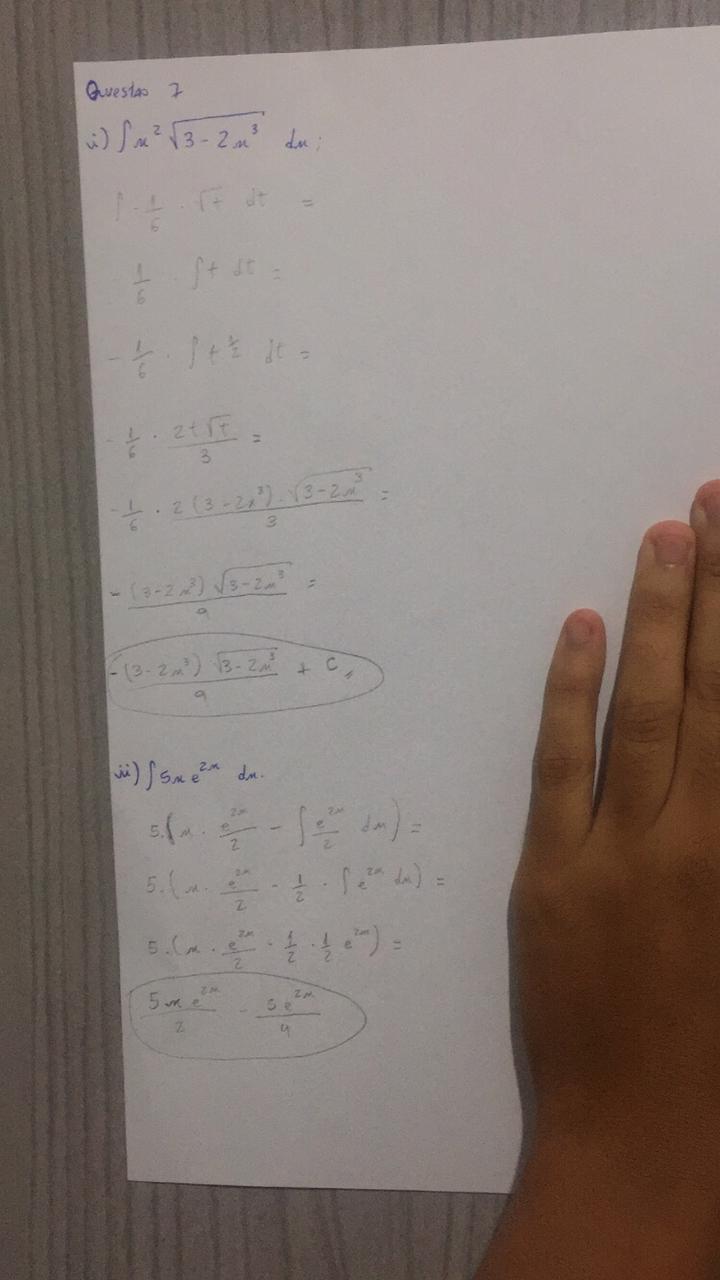 Questao 7
i) ∫ x² √(3 - 2x³) dx;
∫ - 1/6 . √t dt =
- 1/6 . ∫ t dt =
- 1/6 . ∫ t^(1/2) dt =
- 1/6 . 2t√t/3 =
- 1/6 . 2(3 - 2x³) . √(3 - 2x³)/3 =
- (3 - 2x³) √(3 - 2x³)/9 =
- (3 - 2x³) √(3 - 2x³)/9 + C,,
ii) ∫ 5x e^(2x) dx.
5.(x . e^(2x)/2 - ∫ e^(2x)/2 dx) =
5.(x . e^(2x)/2 - 1/2 . ∫ e^(2x) dx) =
5.(x . e^(2x)/2 - 1/2 . 1/2 e^(2x)) =
5x e^(2x)/2 - 5e^(2x)/4